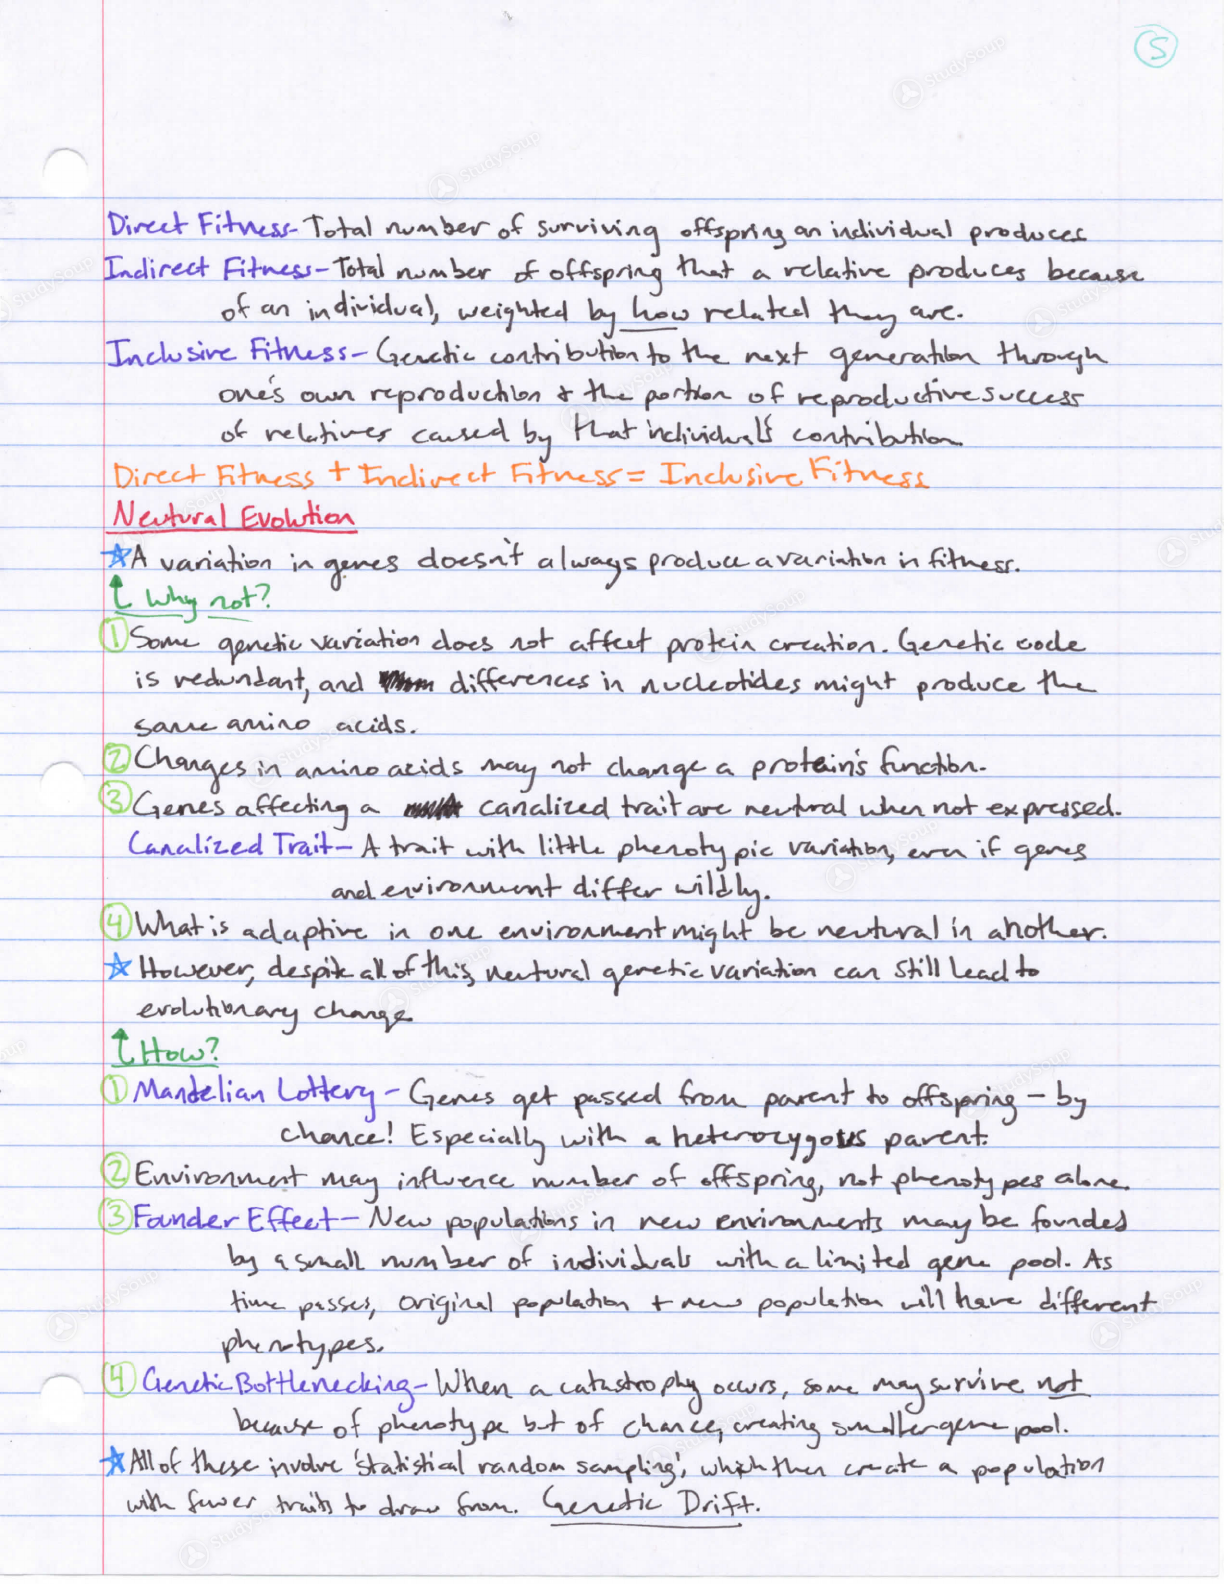 5
Direct Fitness- Total number of surviving offspring an individual produces
Indirect Fitness- Total number of offspring that a relative produces because
of an individual, weighted by how related they are.
Inclusive Fitness- Genetic contribution to the next generation through
one's own reproduction + the portion of reproductive success
of relatives caused by that individual's contribution
Direct Fitness + Indirect Fitness = Inclusive Fitness
Neutural Evolution
☆A variation in genes doesn't always produce a variation in fitness.
↑ Why not?
① Some genetic variation does not affect protein creation. Genetic code
is redundant, and differences in nucleotides might produce the
same amino acids.
② Changes in amino acids may not change a protein's function.
③ Genes affecting a canalized trait are neutral when not expressed.
Canalized Trait- A trait with little phenotypic variation, even if genes
and environment differ wildly.
④ What is adaptive in one environment might be neutural in another.
☆ However, despite all of this, neutural genetic variation can still lead to
evolutionary change
↑ How?
① Mandelian Lottery- Genes get passed from parent to offspring - by
chance! Especially with a heterozygous parent.
② Environment may influence number of offspring, not phenotypes alone.
③ Founder Effect- New populations in new environments may be founded
by a small number of individuals with a limited gene pool. As
time passes, original population + new population will have different
phenotypes.
④ Genetic Bottlenecking- When a catastrophy occurs, some may survive not
because of phenotype but of chance, creating smaller gene pool.
☆ All of these involve 'statistical random sampling', which then create a population
with fewer traits to draw from. Genetic Drift.
StudySoup